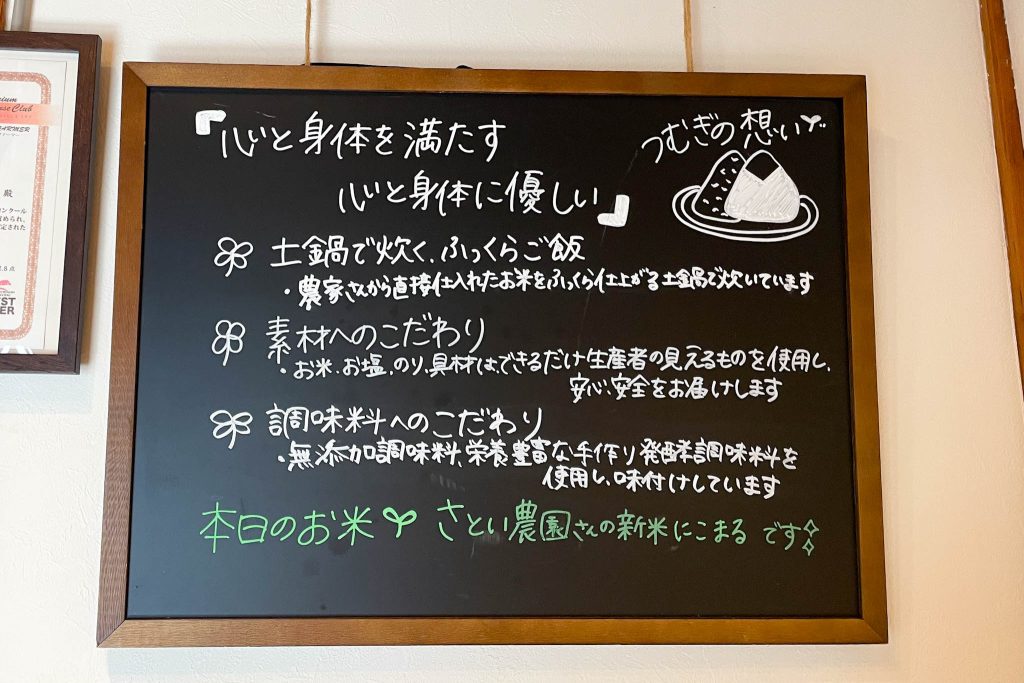 『心と身体を満たす
心と身体に優しい』
つむぎの想い
土鍋で炊く、ふっくらご飯
・農家さんから直接仕入れたお米をふっくら仕上がる土鍋で炊いています
素材へのこだわり
・お米、お塩、のり、具材は、できるだけ生産者の見えるものを使用し、
安心、安全をお届けします
調味料へのこだわり
・無添加調味料、栄養豊富な手作り発酵調味料を
使用し、味付けしています
本日のお米 さとい農園さんの新米にこまるです
殿